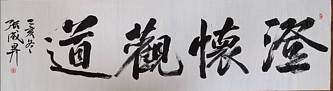 澄懷觀道
己亥冬
張成昇